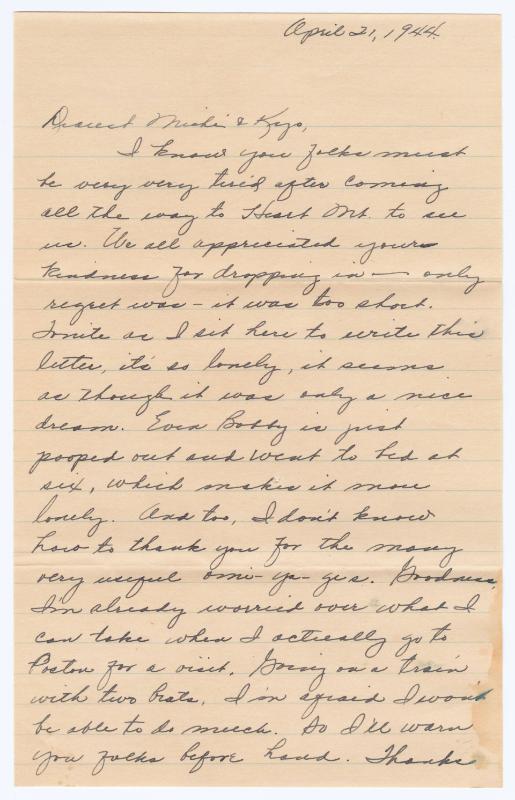 April 21, 1944.
Dearest Michi & Kazo,
I know you folks must
be very very tired after coming
all the way to Heart Mt. to see
us. We all appreciated your
kindness for dropping in — only
regret was - it was too short.
Tonite as I sit here to write this
letter, it's so lonely, it seems
as though it was only a nice
dream. Even Bobby is just
pooped out and went to bed at
six, which makes it more
lonely. And too, I don't know
how to thank you for the many
very useful omi-ya-ges. Goodness,
I'm already worried over what I
can take when I actically go to
Poston for a visit. Going on a train
with two brats, I'm afraid I won't
be able to do much. So I'll warn
you folks before hand. Thanks